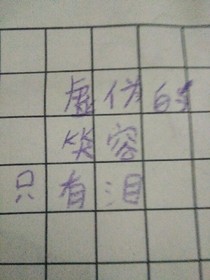 虚伪的
笑容
只有泪